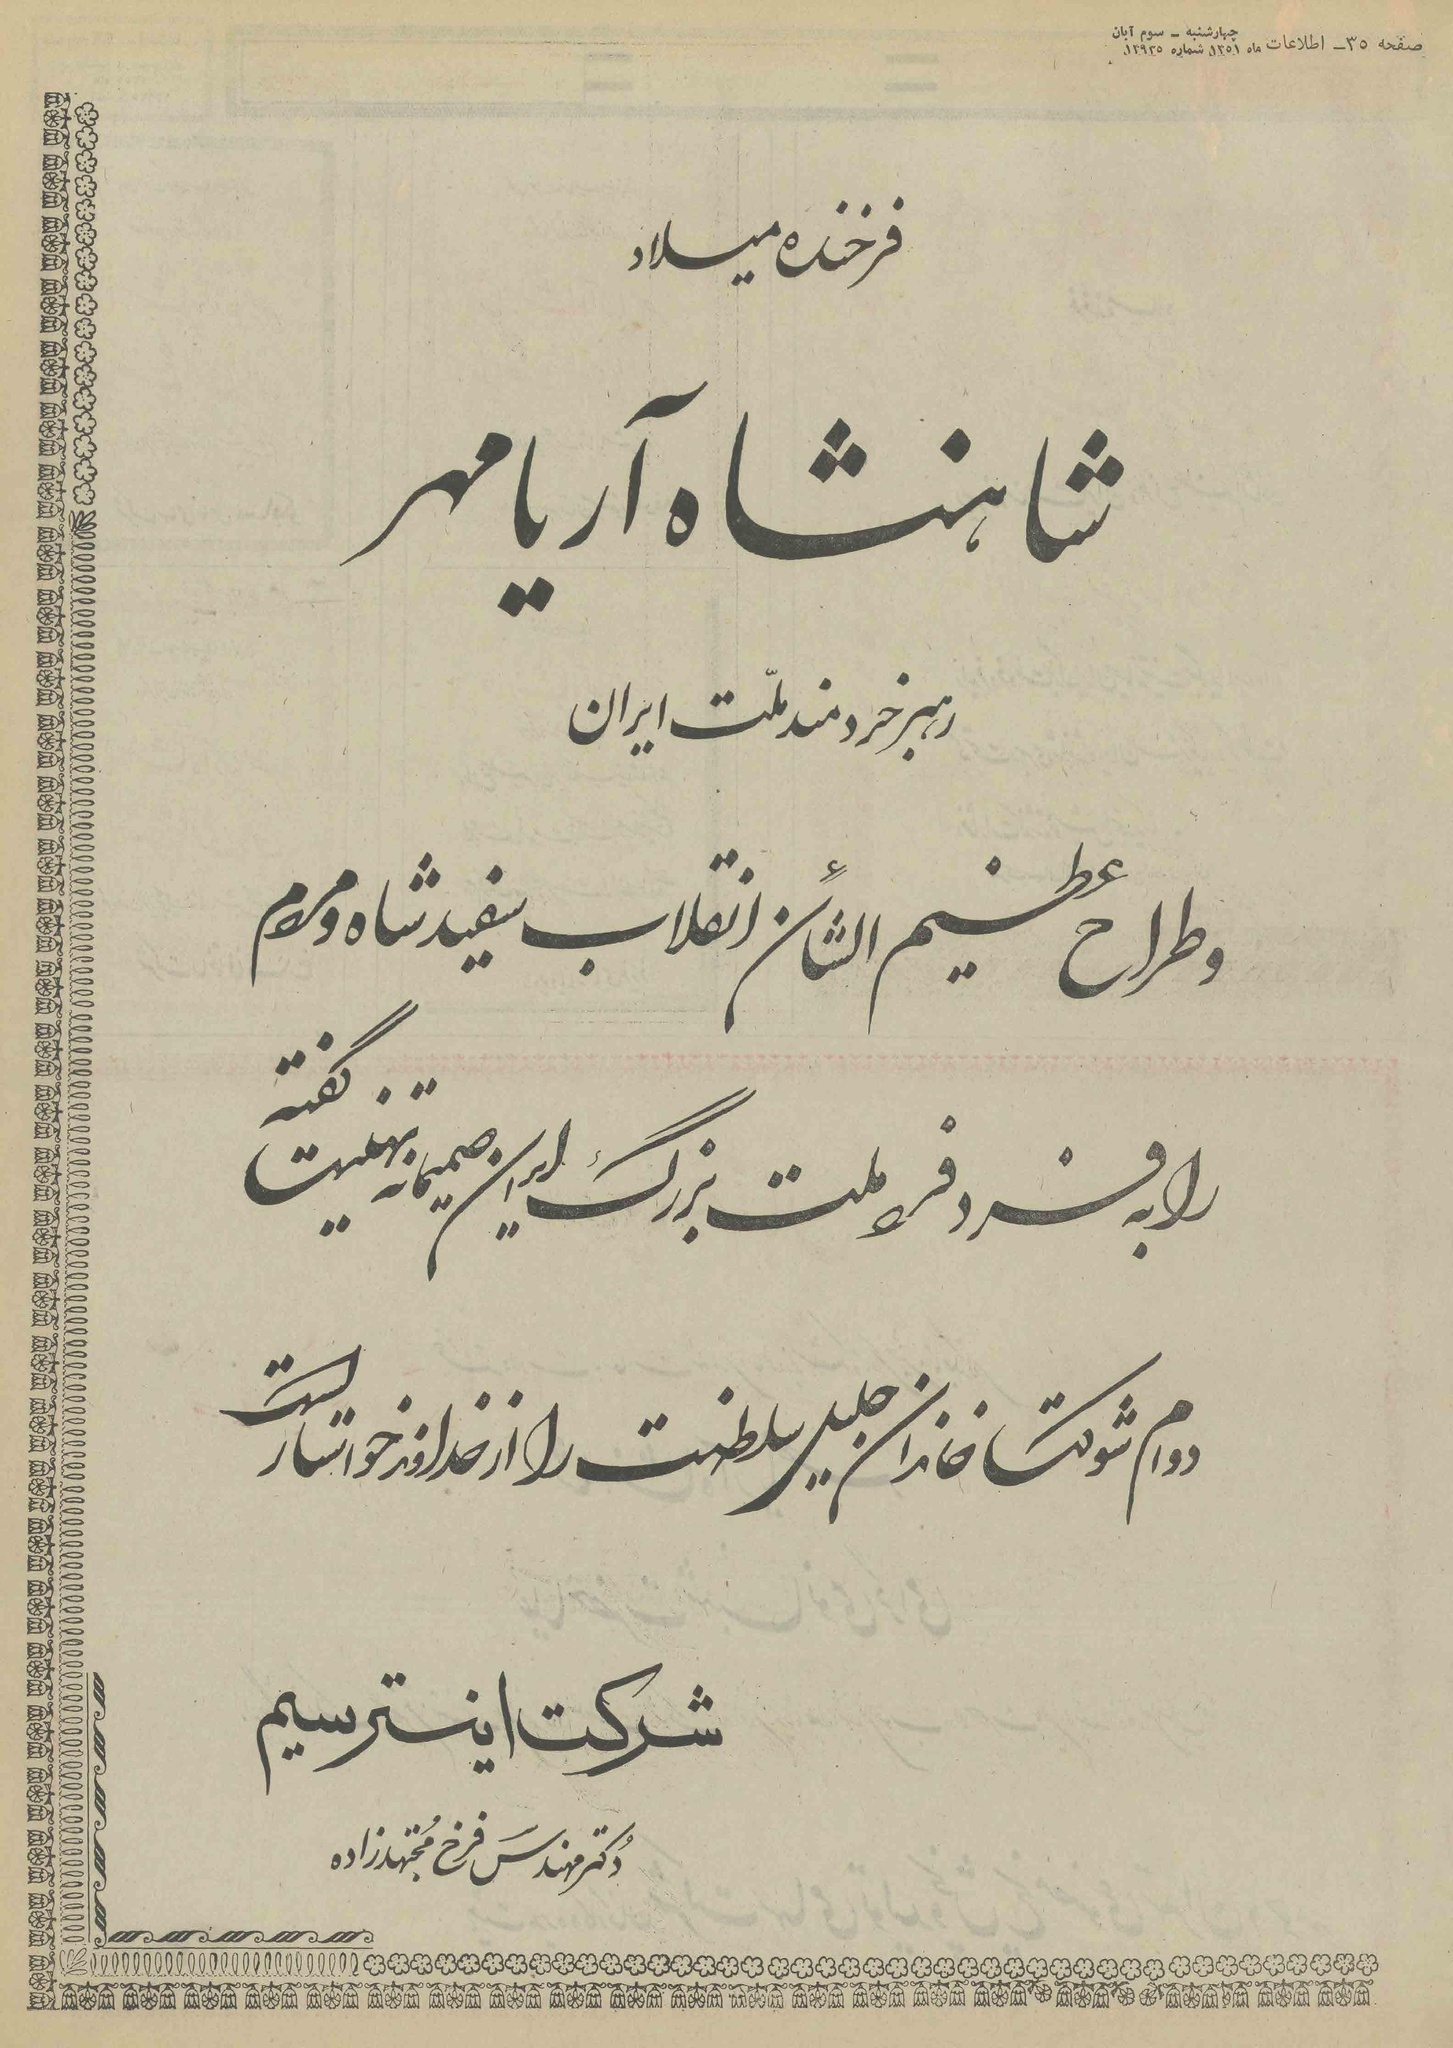 صفحه ۳۵ــ اطلاعات چهارشنبه ــ سوم آبان
ماه ۱۳۵۱، شماره ۱۳۹۳۵،
فرخنده میلاد
شاهنشاه آریامهر
رهبر خردمند ملّت ایران
و طراح عظیم الشأن انقلاب سفید شاه و مردم
را به فرد فرد ملت بزرگ ایران صمیمانه تهنیت گفته
دوام شوکت خاندان جلیل سلطنت را از خداوند خواستار است
شرکت اینترسیم
دُکتر مهندس فرخ مُجتهدزاده